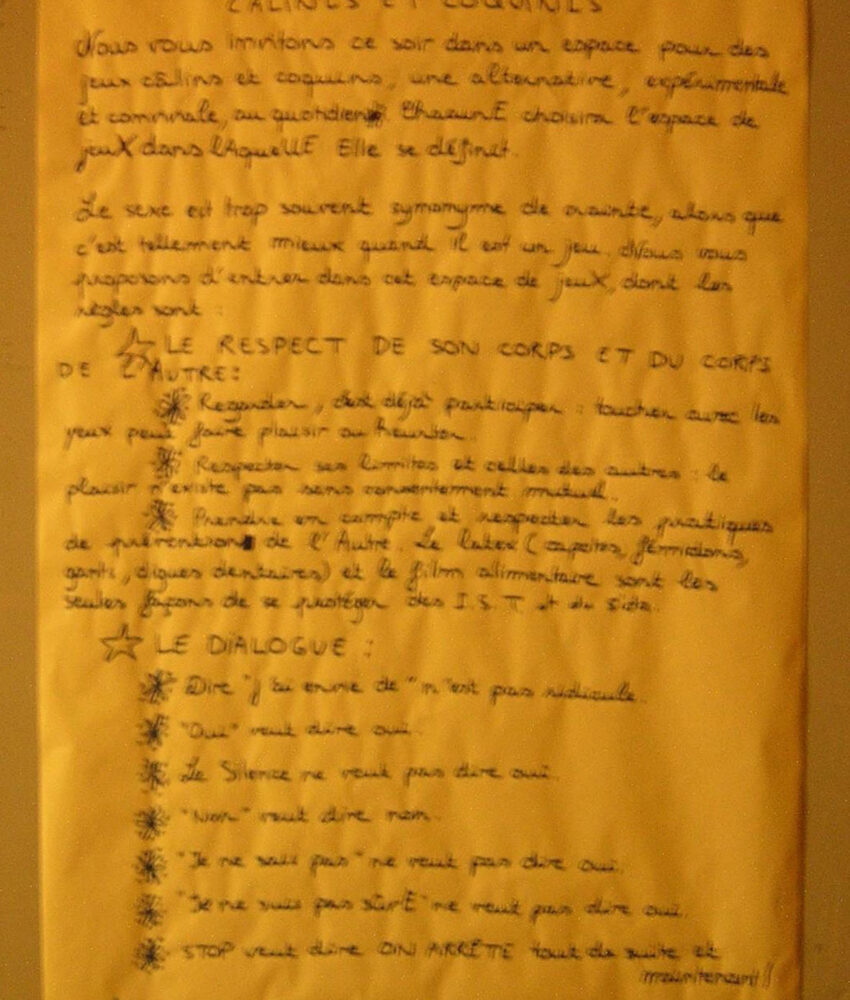 CÂLINES ET COQUINES
Nous vous invitons ce soir dans un espace pour des
jeux câlins et coquins, une alternative, expérimentale
et conviviale, au quotidien. ChacunE choisira l'espace de
jeuX dans lAquelLE Elle se définit.
Le sexe est trop souvent synonyme de crainte, alors que
c'est tellement mieux quand il est un jeu. Nous vous
proposons d'entrer dans cet espace de jeuX, dont les
règles sont :
LE RESPECT DE SON CORPS ET DU CORPS
DE L'AUTRE:
Regarder, c'est déjà participer : toucher avec les
yeux peut faire plaisir ou heurter.
Respecter ses limites et celles des autres : le
plaisir n'existe pas sans consentement mutuel.
Prendre en compte et respecter les pratiques
de prévention de l'Autre. Le latex (capotes, fémidons,
gants, digues dentaires) et le film alimentaire sont les
seules façons de se protéger des I.S.T et du sida.
LE DIALOGUE :
Dire "j'ai envie de" n'est pas ridicule.
"Oui" veut dire oui.
Le Silence ne veut pas dire oui.
"Non" veut dire non.
"Je ne sais pas" ne veut pas dire oui.
"Je ne suis pas sûrE" ne veut pas dire oui.
STOP veut dire ON ARRÊTE tout de suite et
maintenant !!